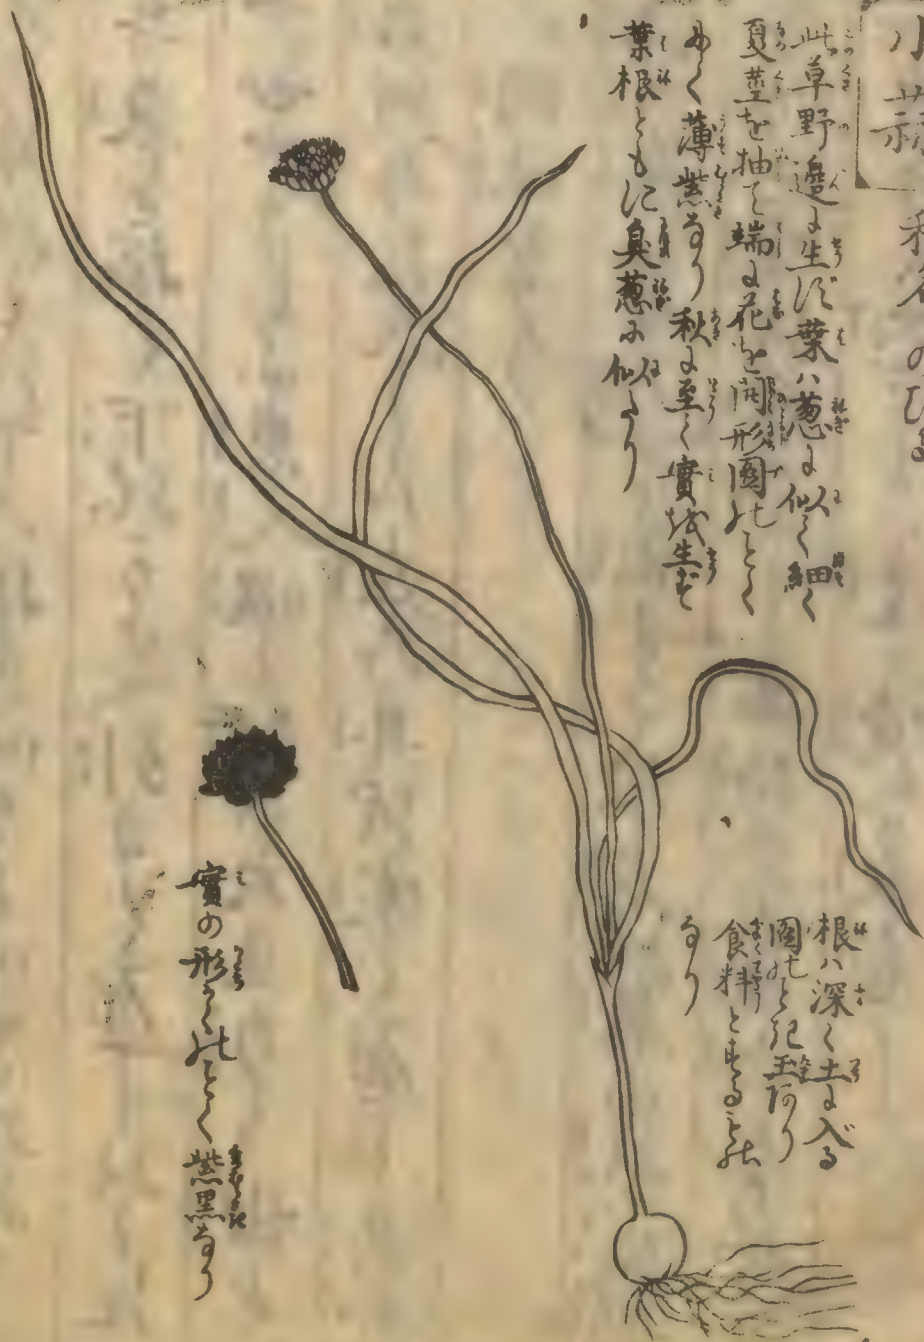 小蒜 和名のびる
此草野邊に生ず葉ハ葱に似て細く
夏莖を抽て端に花を開形圖のごとく
薄紫なり秋に至て實を生ず
葉根ともに臭葱に似たり
根ハ深く土に入る
圖のごとき玉あり
食料とする
なり
實の形のごとく紫黒なり